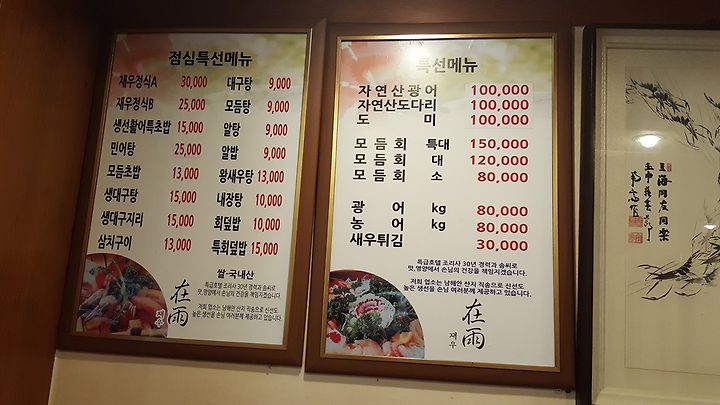 점심특선메뉴
재우정식A 30,000 대구탕 9,000
재우정식B 25,000 모듬탕 9,000
생선활어특초밥 15,000 알탕 9,000
민어탕 25,000 알밥 9,000
모듬초밥 13,000 왕새우탕 13,000
생대구탕 15,000 내장탕 10,000
생대구지리 15,000 회덮밥 10,000
삼치구이 13,000 특회덮밥 15,000
쌀-국내산
특급호텔 조리사 30년 경력과 솜씨로
맛,영양에서 손님의 건강을 책임지겠습니다.
저희 업소는 남해안 산지 직송으로 신선도
높은 생선을 손님 여러분께 제공하고 있습니다.
在雨
재우
특선메뉴
자연산광어 100,000
자연산도다리 100,000
도미 100,000
모듬회 특대 150,000
모듬회 대 120,000
모듬회 소 80,000
광어 kg 80,000
농어 kg 80,000
새우튀김 30,000
특급호텔 조리사 30년 경력과 솜씨로
맛,영양에서 손님의 건강을 책임지겠습니다.
저희 업소는 남해안 산지 직송으로 신선도
높은 생선을 손님 여러분께 제공하고 있습니다.
在雨
재우